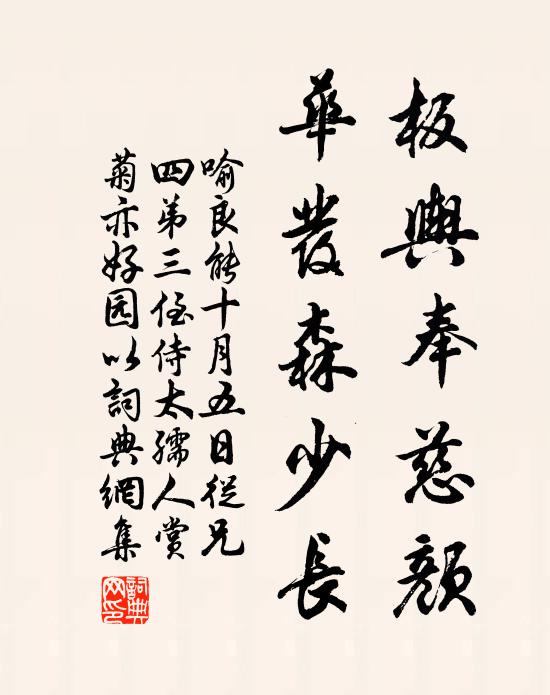 板輿奉慈顔
華发森少長
喻良能十月五日從兄
四弟三侄侍太孺人賞
菊亦好园以詞典網集
詞典網印